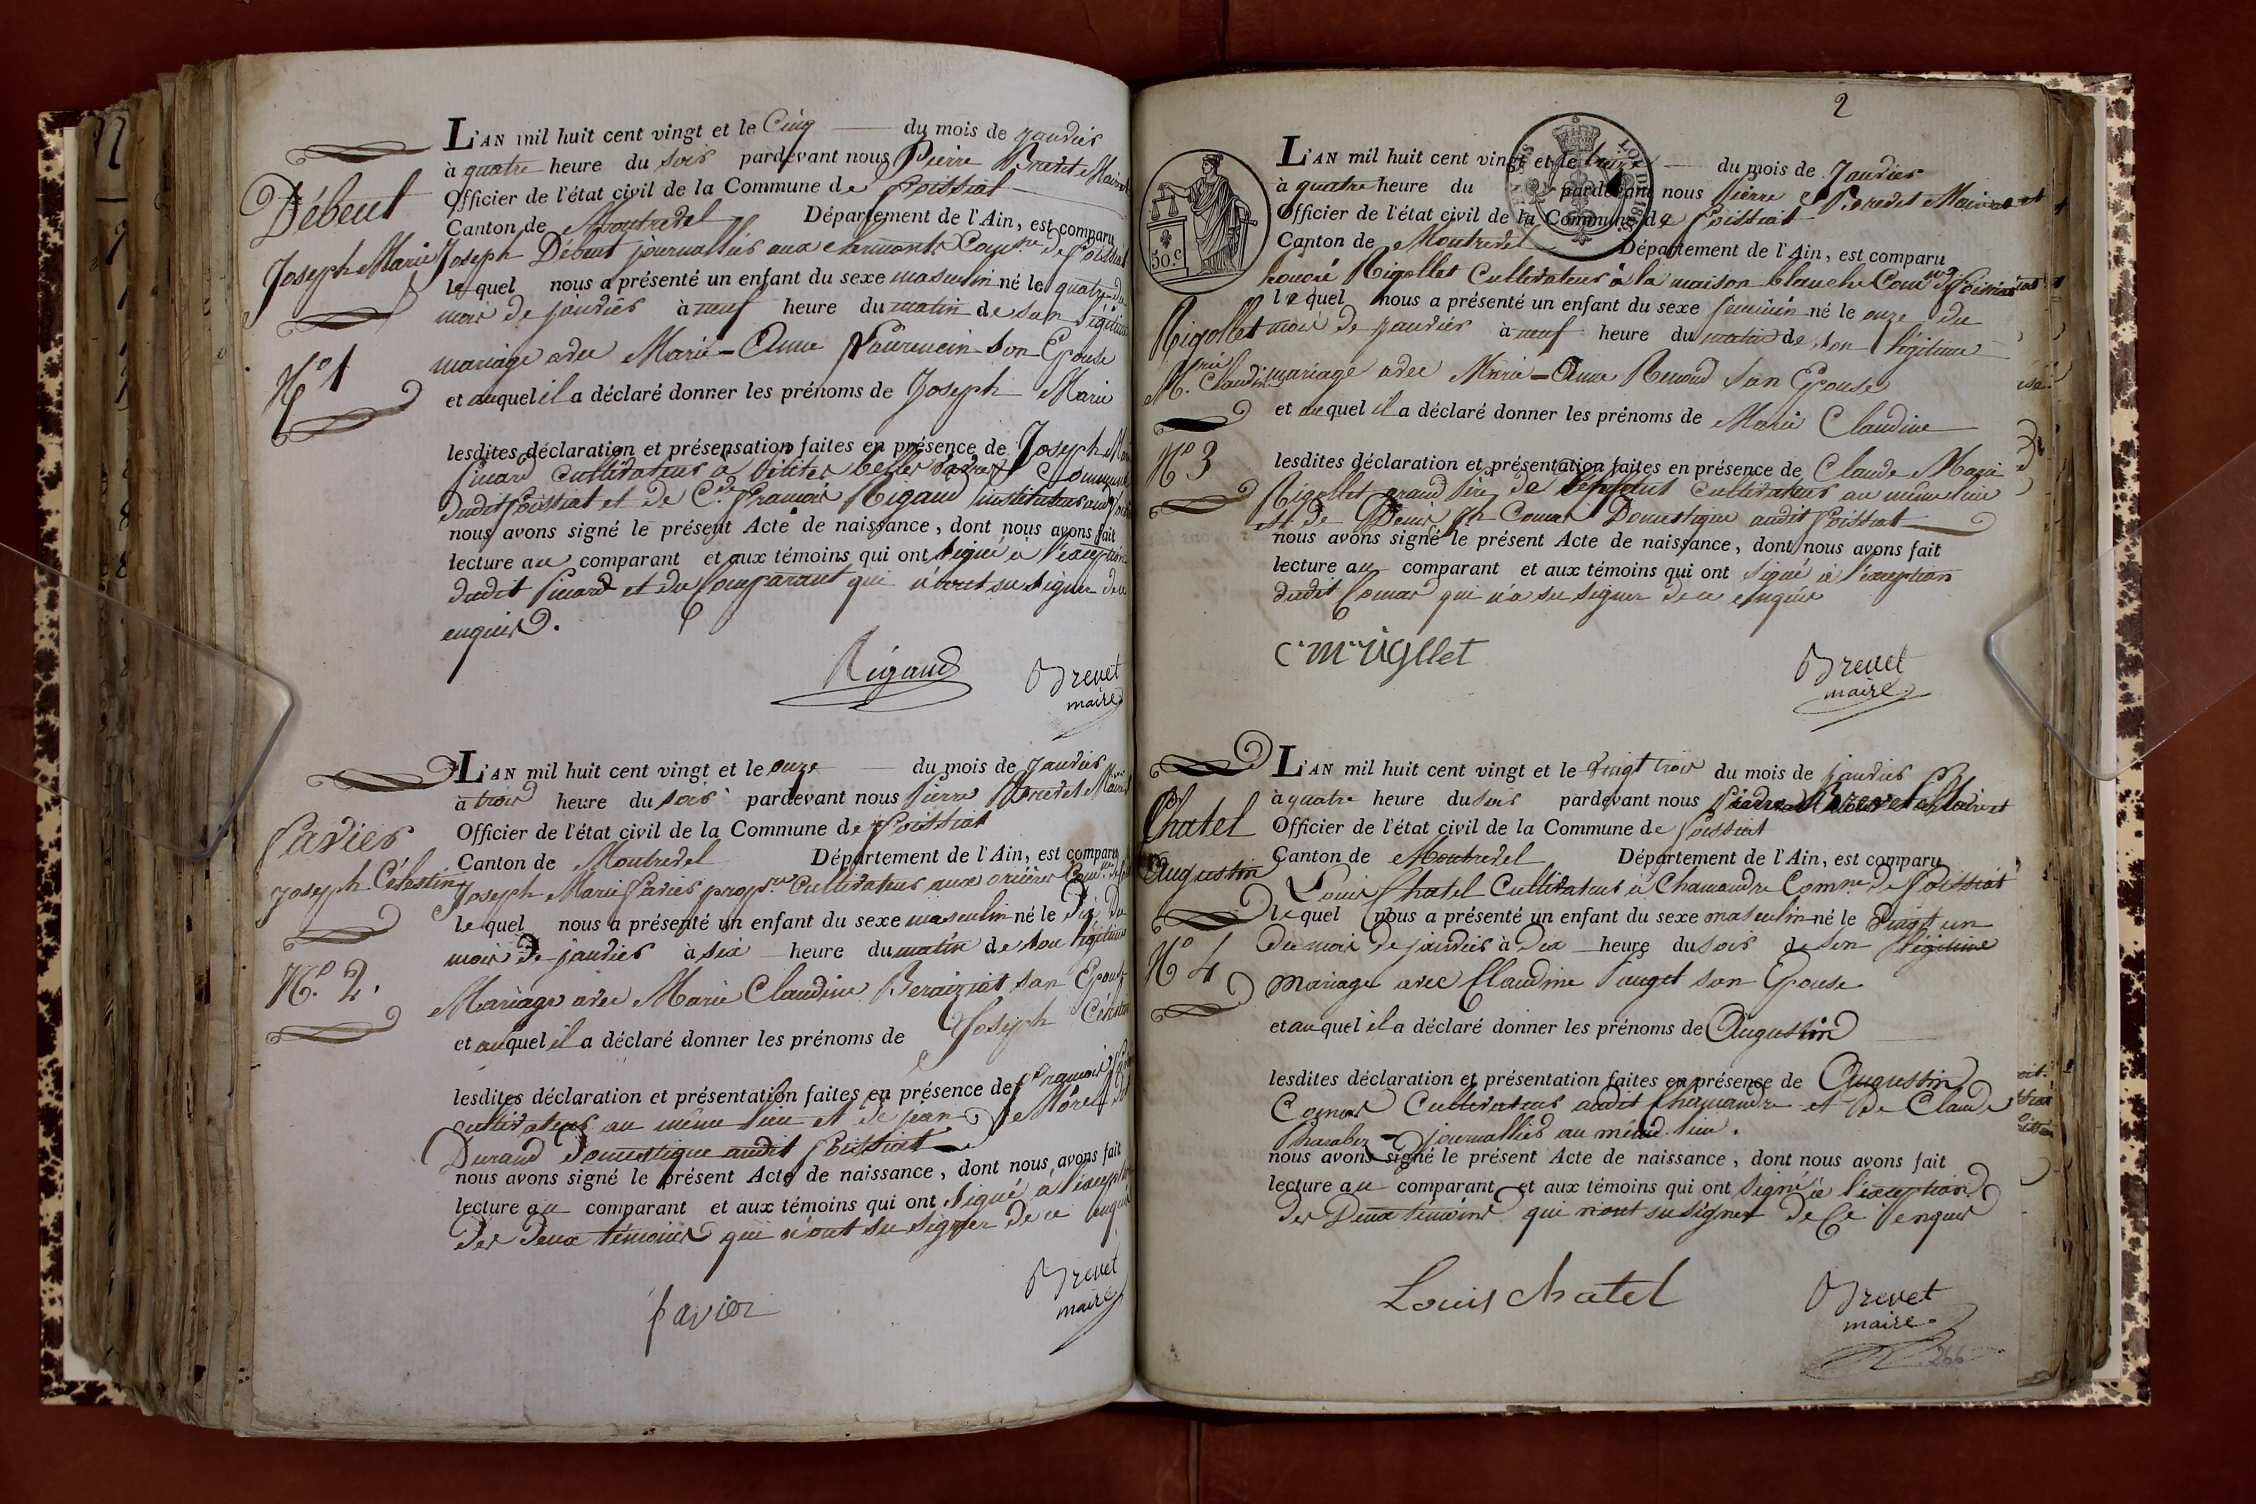 Débeut
Joseph Marie
N.º 1
L'AN mil huit cent vingt et le Cinq du mois de janvier
à quatre heure du soir pardevant nous Pierre Brevet Maire
Officier de l'état civil de la Commune de Poissiat
Canton de Montrevel Département de l'Ain, est comparu
Joseph Débeut journallier aux
le quel nous a présenté un enfant du sexe masculin né le quatre du
mois de janvier à neuf heure du matin de son légitime
mariage avec Marie-Anne son Epouse
et auquel il a déclaré donner les prénoms de Joseph Marie
lesdites déclaration et présensation faites en présence de Joseph
Picard cultivateur à Commune
dudit Poissiat et de C.de François Rigaud instituteur
nous avons signé le présent Acte de naissance, dont nous avons fait
lecture au comparant et aux témoins qui ont signé à l'exception
dudit Picard et du Comparant qui n'ont su signer de ce
enquis.
Rigaud
Brevet
maire
Pavier
Joseph Célestin
N.º 2.
L'AN mil huit cent vingt et le onze du mois de janvier
à trois heure du soir pardevant nous Pierre Brevet Maire
Officier de l'état civil de la Commune de Poissiat
Canton de Montrevel Département de l'Ain, est comparu
Joseph Marie Pavier prop.re Cultivateur aux
le quel nous a présenté un enfant du sexe masculin né le Dix du
mois de janvier à six heure du matin de son légitime
Mariage avec Marie Claudine son Epouse
et auquel il a déclaré donner les prénoms de Joseph Célestin
lesdites déclaration et présentation faites en présence de François
cultivateur au même lieu et de jean
Durand Domestique audit Poissiat
nous avons signé le présent Acte de naissance, dont nous avons fait
lecture au comparant et aux témoins qui ont signé a l'exception
des deux témoins qui n'ont su signer de ce enquis
Pavier
Brevet
maire
2
50.c
LOI DE 1816
Rigollet
M.rie Claudine
N.º 3
L'AN mil huit cent vingt et le treize du mois de Janvier
à quatre heure du pardevant nous Pierre Brevet Maire et
Officier de l'état civil de la Commune de Poissiat
Canton de Montrevel Département de l'Ain, est comparu
honoré Rigollet Cultivateur à la maison blanche Com.ne de Poissiat
le quel nous a présenté un enfant du sexe feminin né le onze du
mois de janvier à neuf heure du matin de son légitime
mariage avec Marie-Anne Renoud son Epouse
et auquel il a déclaré donner les prénoms de Marie Claudine
lesdites déclaration et présentation faites en présence de Claude Marie
Rigollet grand Père de l'enfant cultivateur au même lieu
et de Denis Comas Domestique audit Poissiat
nous avons signé le présent Acte de naissance, dont nous avons fait
lecture au comparant et aux témoins qui ont signé à l'exception
dudit Comas qui n'a su signer de ce enquis
Brevet
maire
Chatel
Augustin
N.º 4
L'AN mil huit cent vingt et le vingt trois du mois de janvier
à quatre heure du soir pardevant nous Pierre Brevet Maire et
Officier de l'état civil de la Commune de Poissiat
Canton de Montrevel Département de l'Ain, est comparu
Louis Chatel Cultivateur à Chamandre Comne de Poissiat
le quel nous a présenté un enfant du sexe masculin né le vingt un
du mois de janvier à dix heure du soir de son légitime
mariage avec Claudine Pauget son Epouse
et auquel il a déclaré donner les prénoms de Augustin
lesdites déclaration et présentation faites en présence de Augustin
Comas Cultivateur audit Chamandre et de Claude
journallier au même lieu.
nous avons signé le présent Acte de naissance, dont nous avons fait
lecture au comparant et aux témoins qui ont signé à l'exception
des Deux témoins qui n'ont su signer de Ce enquis
Louis chatel
Brevet
maire
266